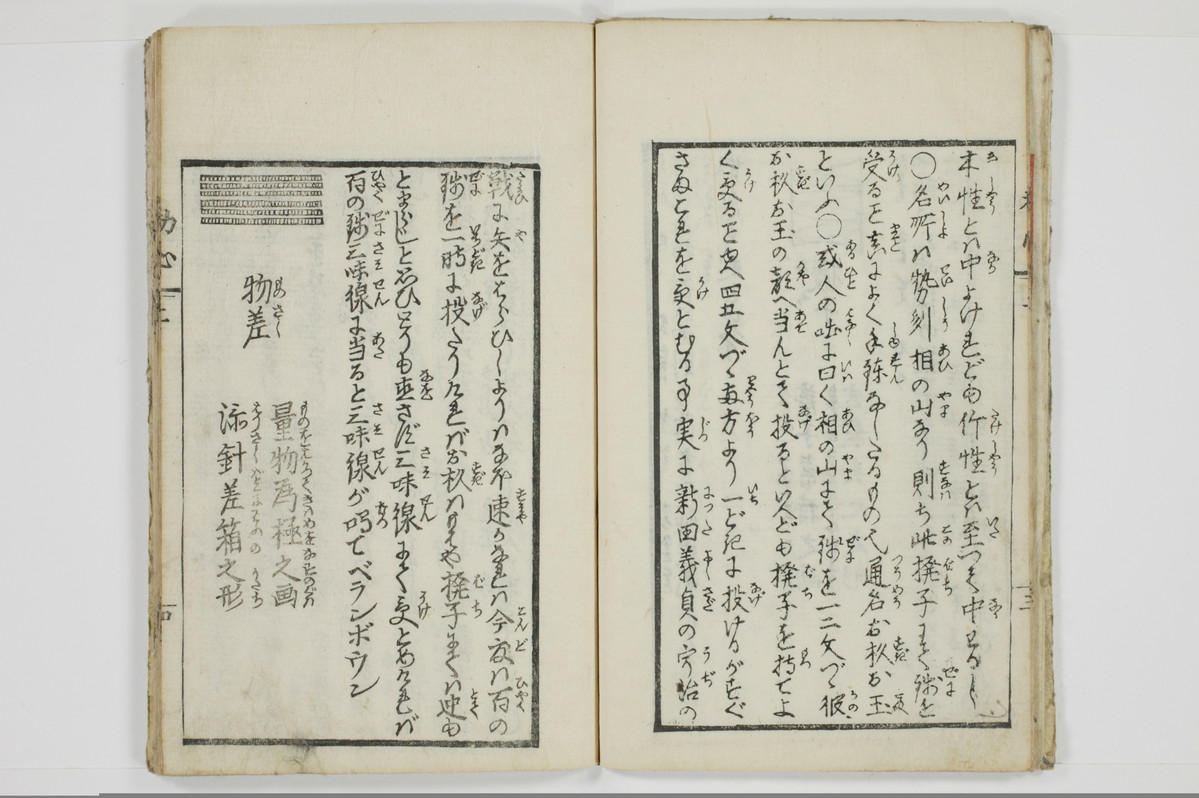 木性とハ中よけれども竹性とハ至つて中わるし
〇名所ハ勢刕相の山なり則ち此撥子にて銭を
受ることまことによく手練したるもの也通名お杦お玉
といふ〇或人の咄に曰く相の山にて銭を一二文づゝ彼
お杦お玉の顔へ当んとて投るといへども撥子を持てよ
く受ること也四五文づゝ両方より一どきに投けるがすぐ
さまこれを受とむる事実に新田義貞の宇治の
戦に矢をはらひしよりハなほ速かなれバ今度ハ百の
銭を一時に投たりけれバお杦ハもはや撥子にてハ迚も
とまらじと思ひとりも直さず三味線にて受とめけれバ
百の銭三味線に当ると三味線が鳴てベランボウン
物差
量物為極之画
添針差箱之形